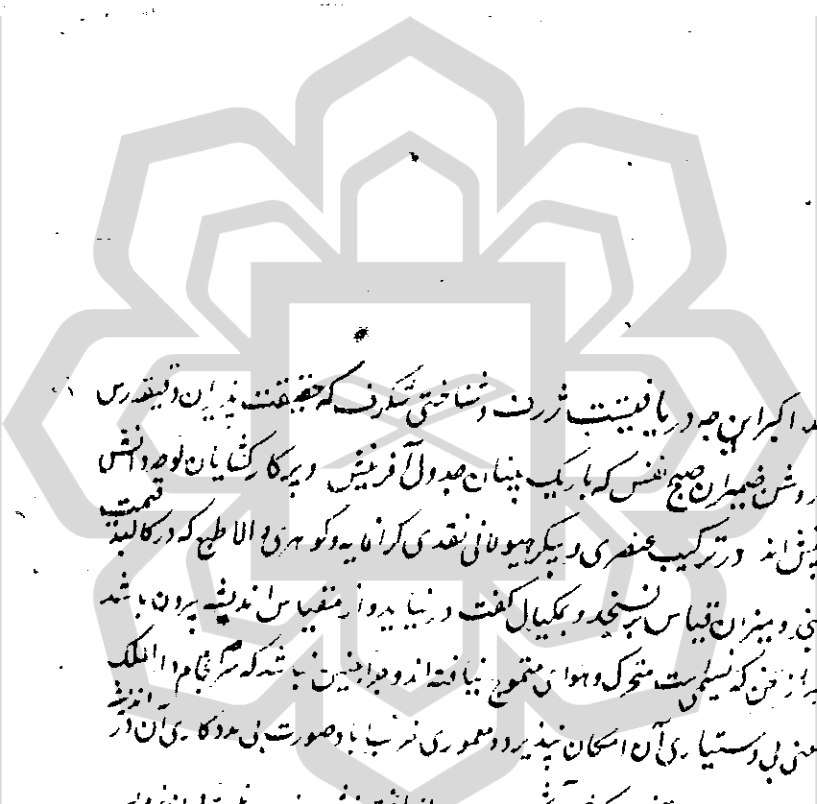 اکبر این چه دریافتیست ژرف و شناختی شگرف که حقیقت پذیران دقیقه رس
روشن ضمیران صبح نفس که باریک بینان جدول آفرینش و پرکار کشایان لوحه دانش
بینش اند در ترکیب عنصری و پیکر هیولانی نقدی گرانمایه و گوهری والا طبع که در کالبد قیمت
و میزان قیاس برنسنجد و بمکیال گفت در نیاید و از مقیاس اندیشه برون باشد
از سخن که نسیمیست متحرک و هوای متموج نیافته اند و چرا چنین نباشد که سرانجام دار الملک
معنی بی دستیاری آن امکان نپذیرد و معموری خراباباد صورت بی مددکاری آن در اندیشه